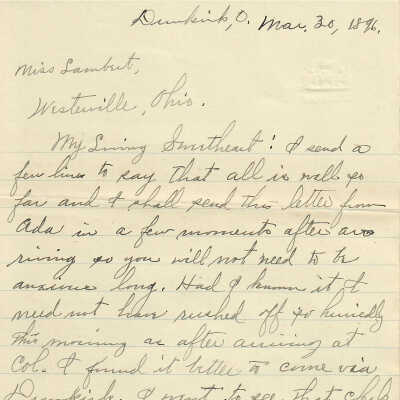 Dunkirk, O. Mar. 30, 1896.
Miss Lambert,
Westerville, Ohio.
My Loving Sweetheart: I send a
few lines to say that all is well so
far and I shall send this letter from
Ada in a few moments after ar-
riving so you will not need to be
anxious long. Had I known it I
need not have rushed off so hurriedly
this morning as after arriving at
Col. I found it better to come via
Dunkirk. I want to see that